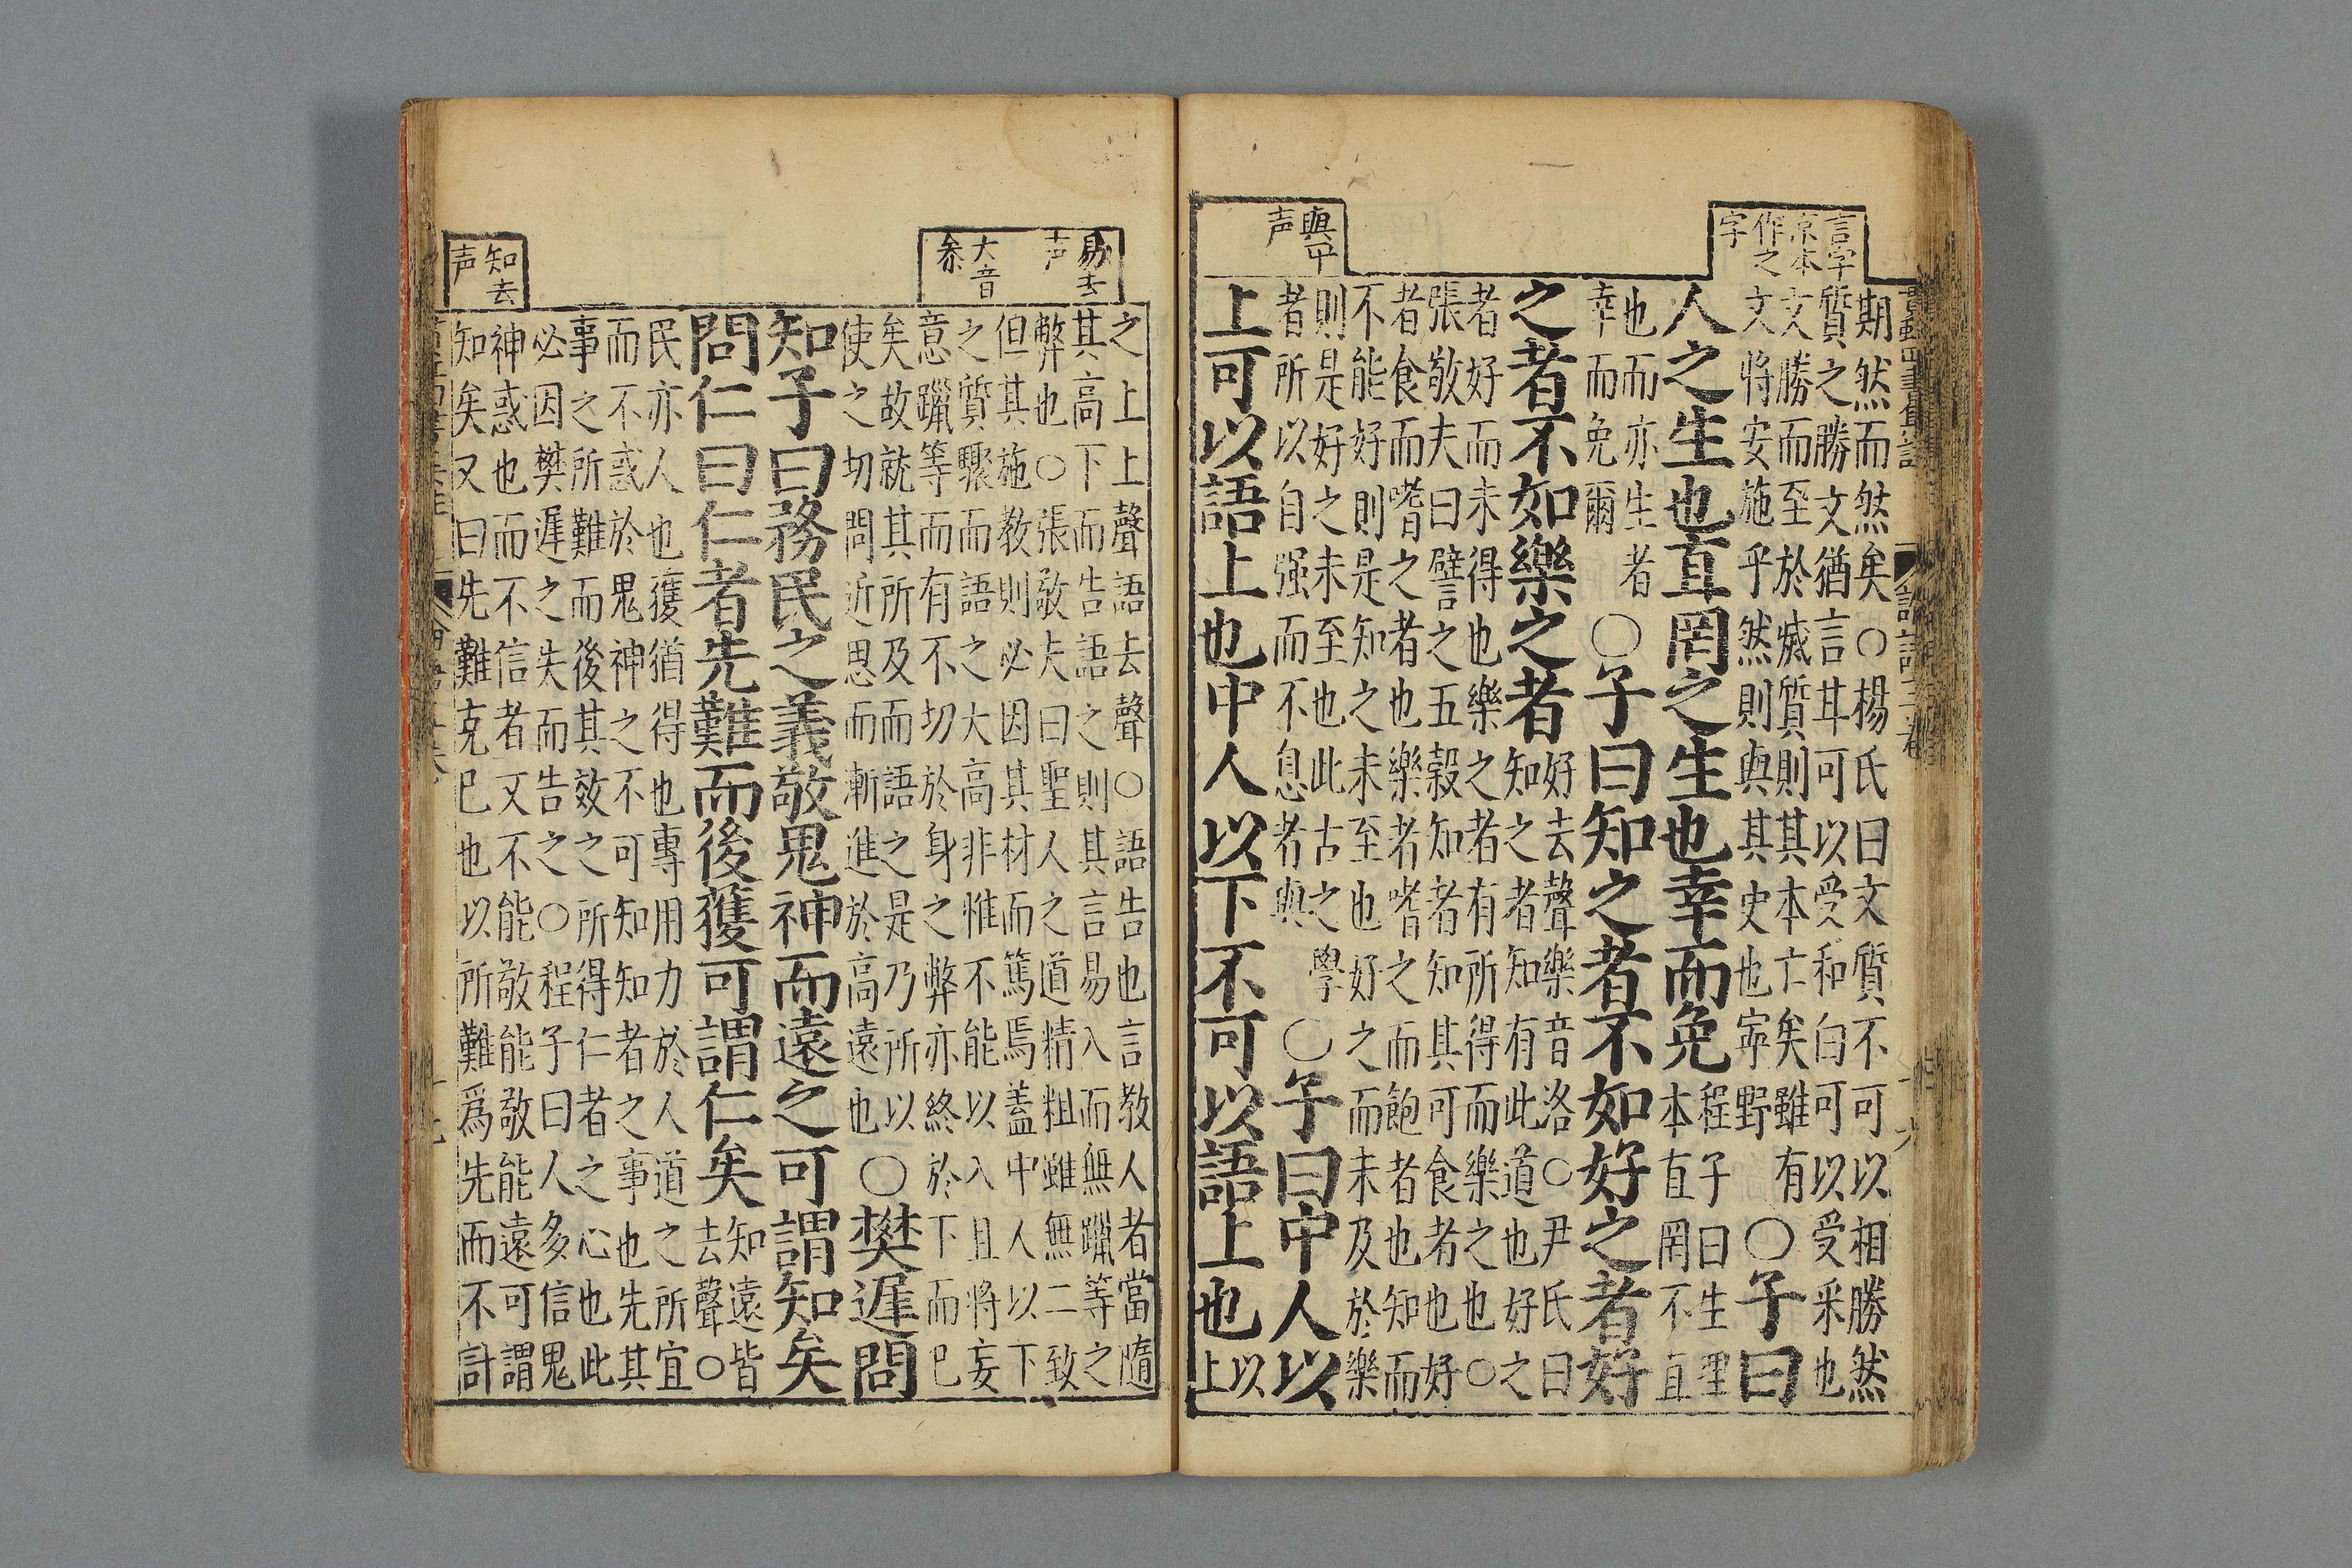 言字
京本
作之
字
與平
声
期然而然矣○楊氏曰文質不可以相勝然
質之勝文猶言耳可以受和白可以受釆也
文勝而至於滅質則其本亡矣雖有
文將安施乎然則與其史也寧野
○子曰
人之生也直罔之生也幸而免
程子曰生理
本直罔不直
也而亦生者
幸而免爾
○子曰知之者不如好之者好
之者不如樂之者
好去聲樂音洛○尹氏曰
知之者知有此道也好之
者好而未得也樂之者有所得而樂之也○
張敬夫曰譬之五榖知者知其可食者也好
者食而嗜之者也樂者嗜之而飽者也知而
不能好則是知之未至也好之而未及於樂
則是好之未至也此古之學
者所以自强而不息者與
○子曰中人以
上可以語上也中人以下不可以語上也
以
上
易去
声
大音
泰
知去
声
之上上聲語去聲○語告也言教人者當隨
其高下而告語之則其言易入而無躐等之
弊也○張敬夫曰聖人之道精粗雖無二致
但其施教則必因其材而篤焉蓋中人以下
之質驟而語之大高非惟不能以入且將妄
意躐等而有不切於身之弊亦終於下而已
矣故就其所及而語之是乃所以
使之切問近思而漸進於高遠也
○樊遲問
知子曰務民之義敬鬼神而遠之可謂知矣
問仁曰仁者先難而後獲可謂仁矣
知遠皆
去聲○
民亦人也獲猶得也專用力於人道之所宜
而不惑於鬼神之不可知知者之事也先其
事之所難而後其效之所得仁者之心也此
必因樊遲之失而告之○程子曰人多信鬼
神惑也而不信者又不能敬能敬能遠可謂
知矣又曰先難克已也以所難爲先而不計